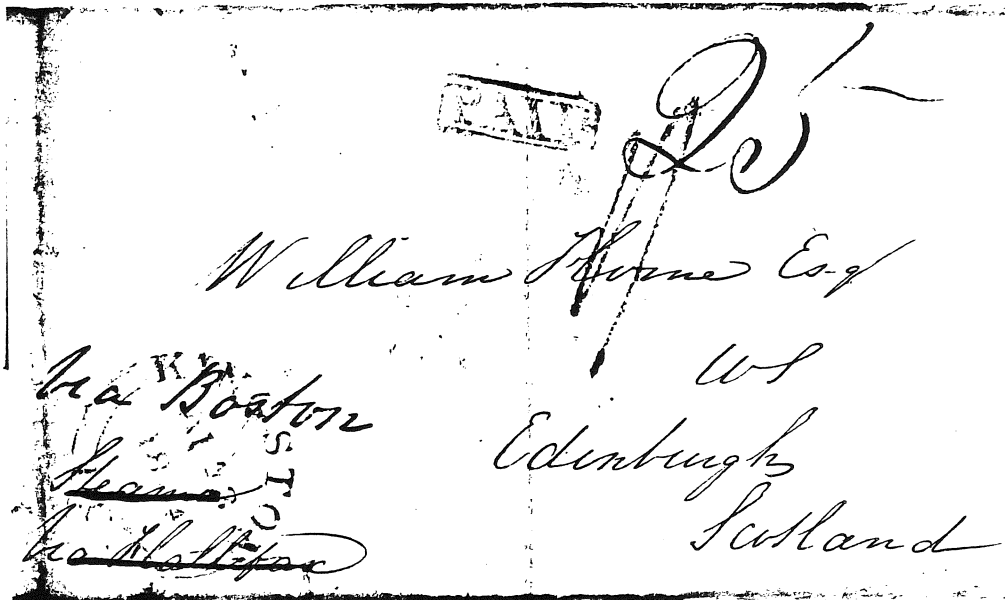 PAID
25
William Horne Esq
WS
Edinburgh
Scotland
Via Boston
Steamer
Via Hallifax